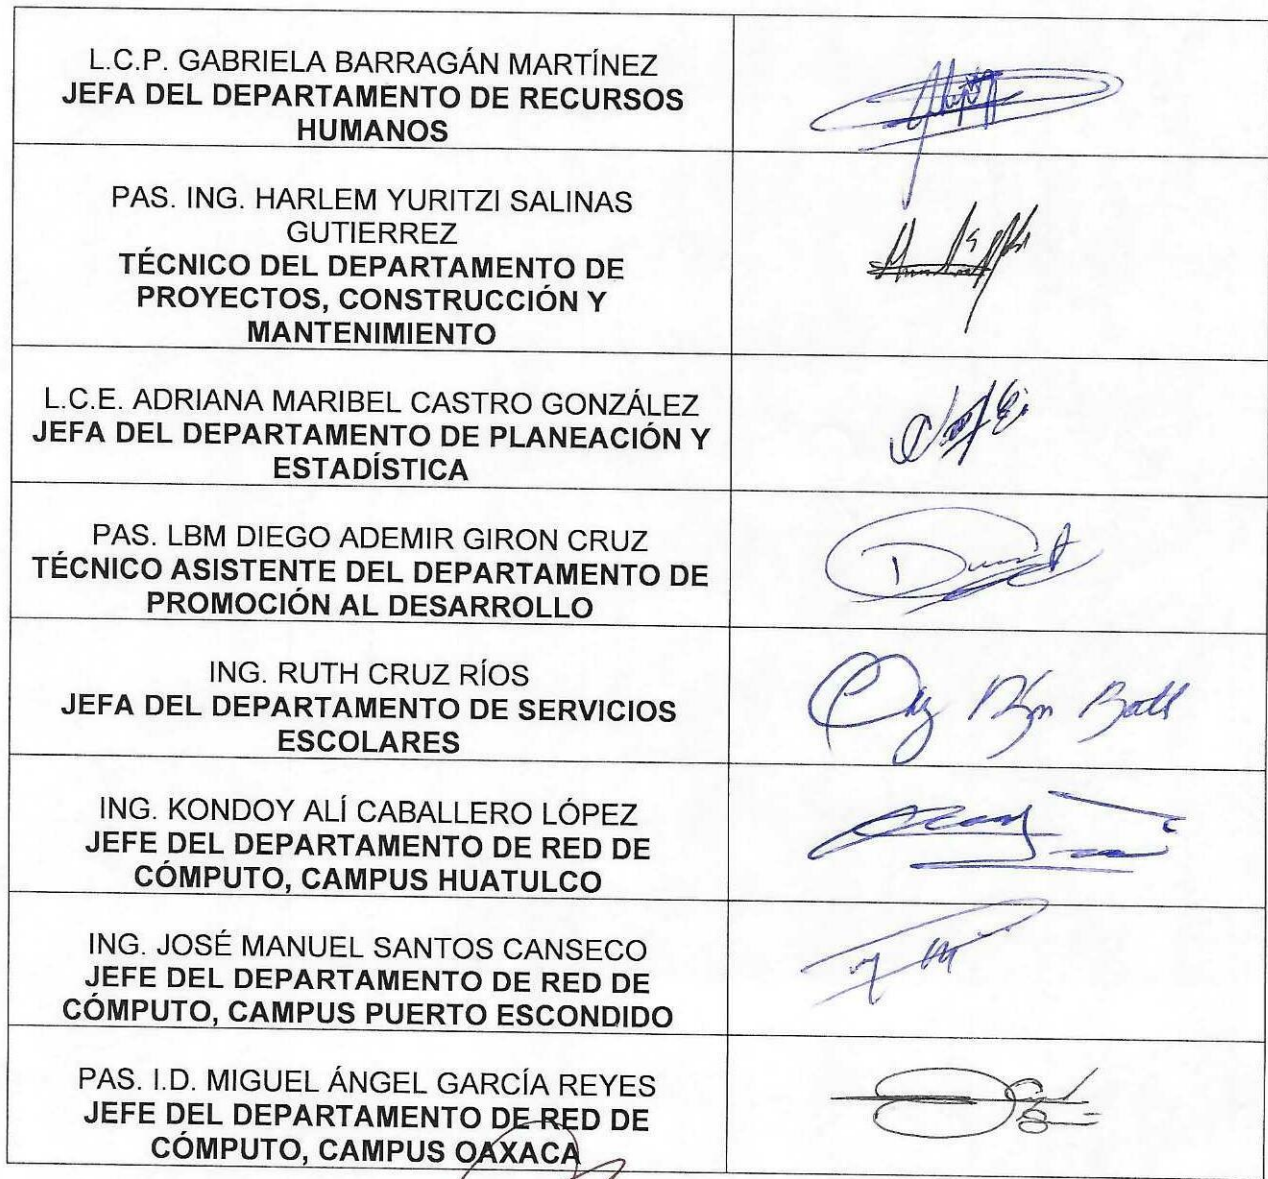 L.C.P. GABRIELA BARRAGÁN MARTÍNEZ
JEFA DEL DEPARTAMENTO DE RECURSOS
HUMANOS
PAS. ING. HARLEM YURITZI SALINAS
GUTIERREZ
TÉCNICO DEL DEPARTAMENTO DE
PROYECTOS, CONSTRUCCIÓN Y
MANTENIMIENTO
L.C.E. ADRIANA MARIBEL CASTRO GONZÁLEZ
JEFA DEL DEPARTAMENTO DE PLANEACIÓN Y
ESTADÍSTICA
PAS. LBM DIEGO ADEMIR GIRON CRUZ
TÉCNICO ASISTENTE DEL DEPARTAMENTO DE
PROMOCIÓN AL DESARROLLO
ING. RUTH CRUZ RÍOS
JEFA DEL DEPARTAMENTO DE SERVICIOS
ESCOLARES
ING. KONDOY ALÍ CABALLERO LÓPEZ
JEFE DEL DEPARTAMENTO DE RED DE
CÓMPUTO, CAMPUS HUATULCO
ING. JOSÉ MANUEL SANTOS CANSECO
JEFE DEL DEPARTAMENTO DE RED DE
CÓMPUTO, CAMPUS PUERTO ESCONDIDO
PAS. I.D. MIGUEL ÁNGEL GARCÍA REYES
JEFE DEL DEPARTAMENTO DE RED DE
CÓMPUTO, CAMPUS OAXACA